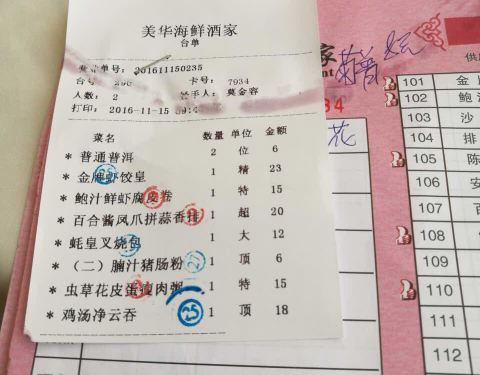 美华海鲜酒家
台单
单号: 201611150235
台号: 296 卡号: 7934
人数: 2 经手人: 莫金容
打印: 2016-11-15 09:4
菜名 数量 单位 金额
* 普通普洱 2 位 6
* 金牌虾饺皇 1 精 23
* 鲍汁鲜虾腐皮卷 1 特 15
* 百合酱凤爪拼蒜香排 1 超 20
* 蚝皇叉烧包 1 大 12
* (二)腩汁猪肠粉 1 顶 6
* 虫草花皮蛋瘦肉粥 1 特 15
* 鸡汤净云吞 1 顶 18
27
25
家
34
花
供应
101 金
102 鲍
103 沙
104 排
105 陈
106
107 百
108
109
110
111
112